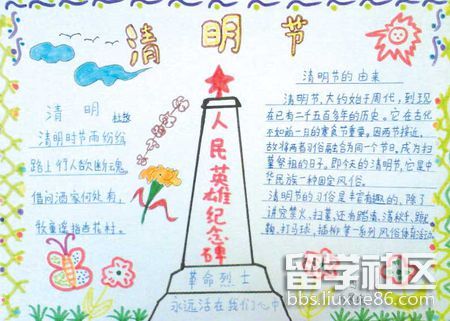 清明节
清明
杜牧
清明时节雨纷纷
路上行人欲断魂
借问酒家何处有,
牧童遥指杏花村。
人民英雄纪念碑
革命烈士
永远活在我们心中
清明节的由来
清明节,大约始于周代,到现
在已有二千五百多年的历史。它在古代
不如前一日的寒食节重要。因两节接近,
故将两者习俗融合为同一个节日,成为扫
墓祭祖的日子。即今天的清明节,它是中
华民族一种固定风俗。
清明节的习俗是丰富有趣的,除了
讲究禁火、扫墓,还有踏青、荡秋千、蹴
鞠、打马球、插柳等一系列风俗体育活动
留学社区
bbs.liuxue86.com